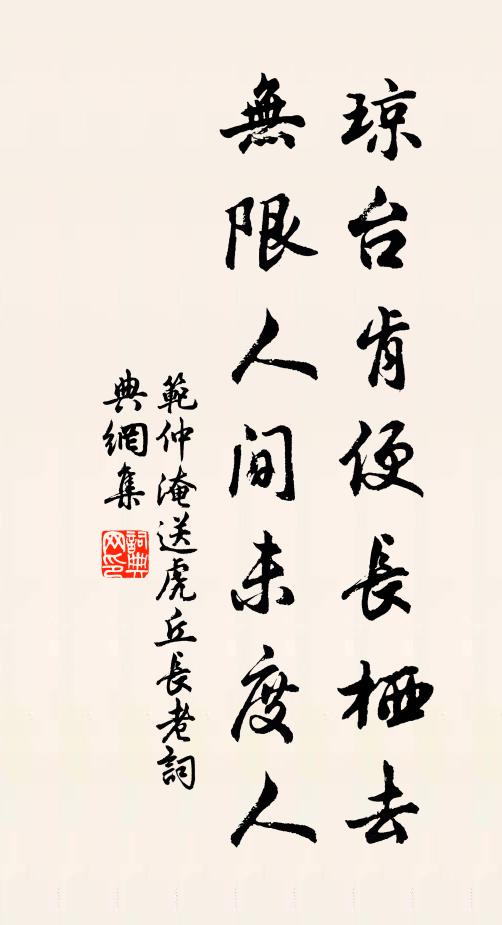 琼台肯便長栖去
無限人間未度人
範仲淹送虎丘長老詞
典網集
詞典网印